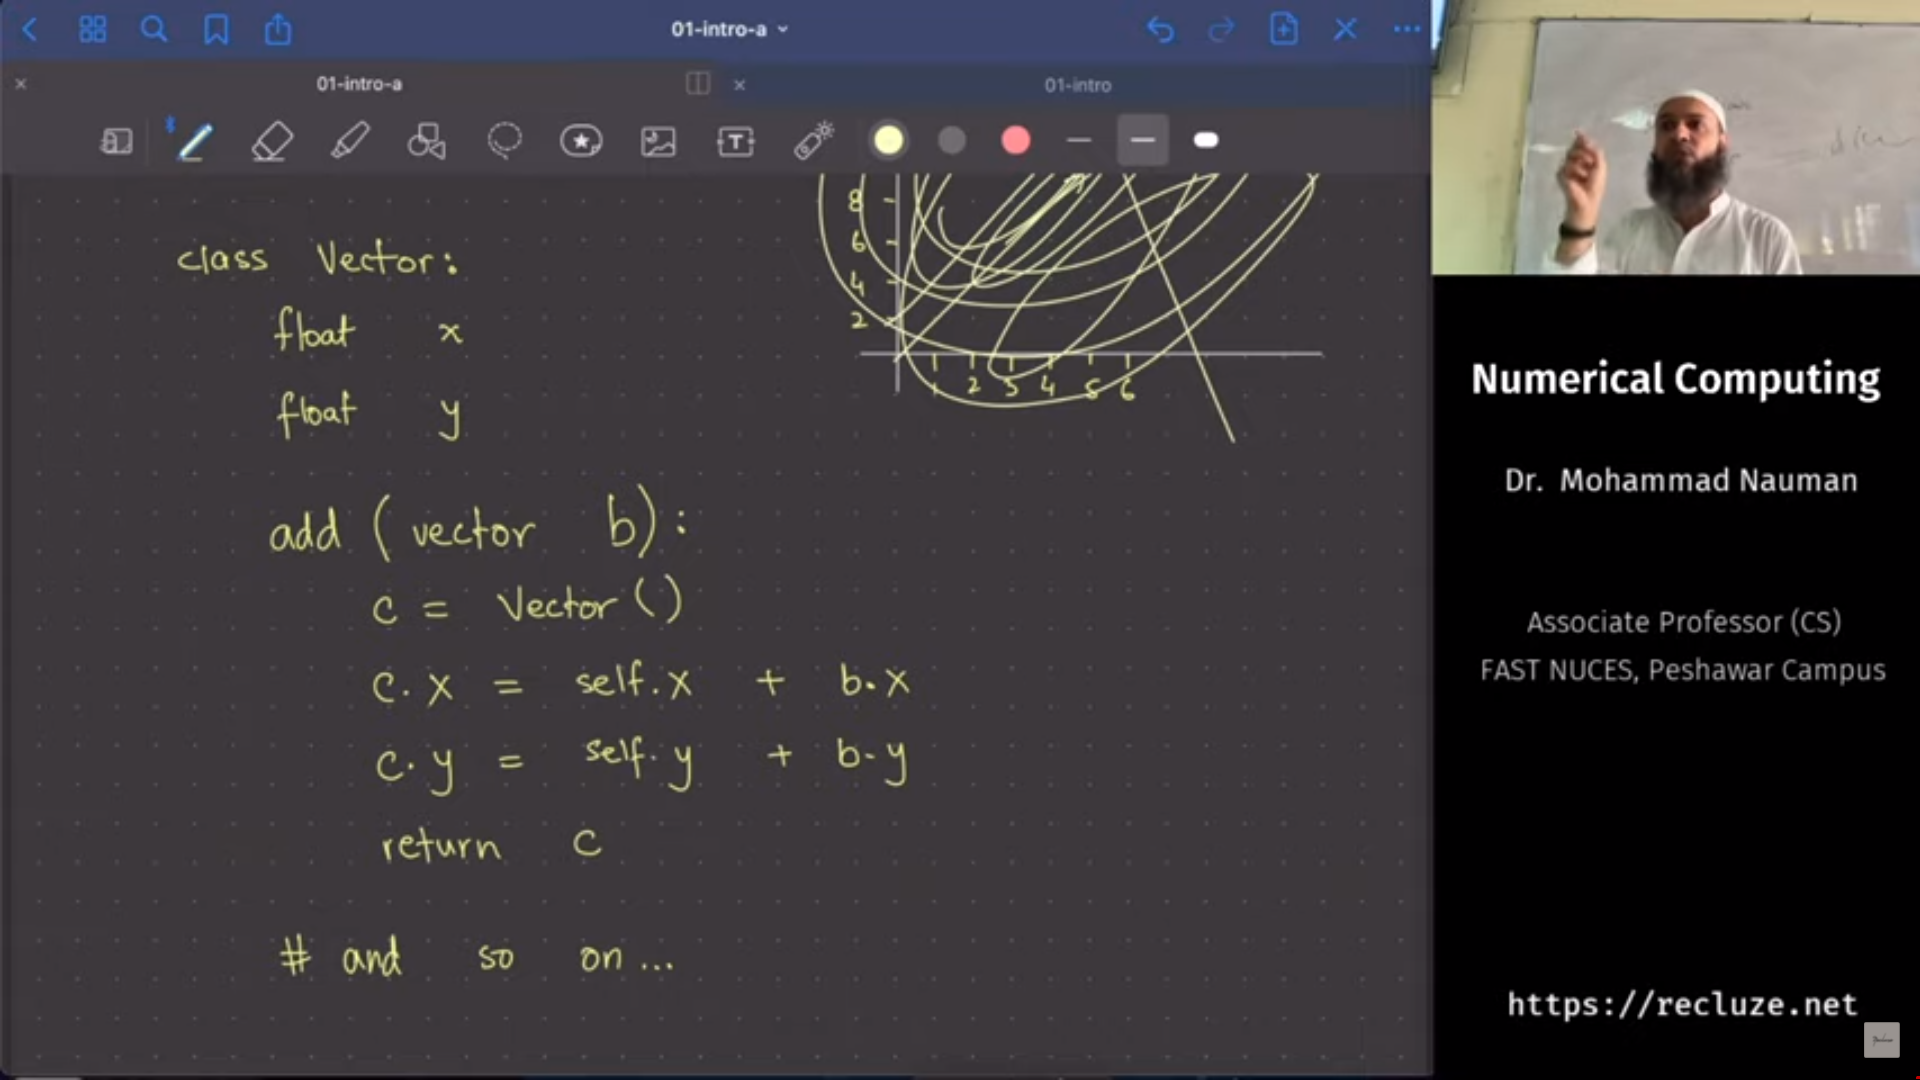 01-intro-a
01-intro-a
01-intro
T
class Vector:
float x
float y
add (vector b):
c = Vector()
c.x = self.x + b.x
c.y = self.y + b.y
return c
# and so on...
8
6
4
2
1 2 3 4 5 6
Numerical Computing
Dr. Mohammad Nauman
Associate Professor (CS)
FAST NUCES, Peshawar Campus
https://recluze.net